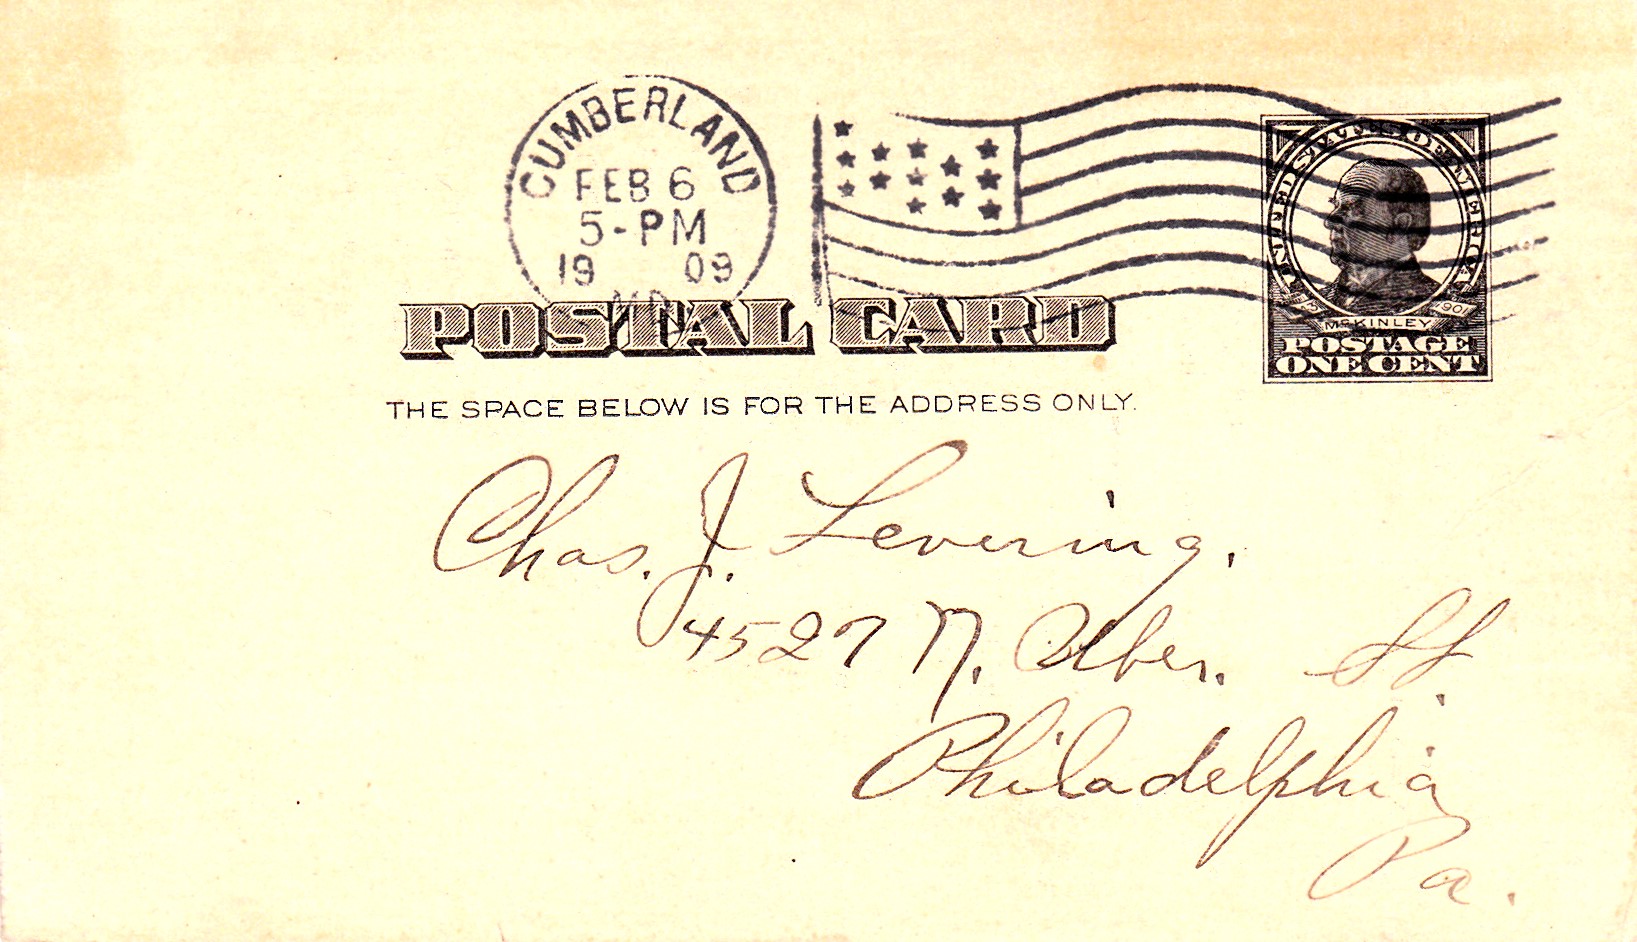 CUMBERLAND
FEB 6
5-PM
19 09
MD.
UNITED STATES OF AMERICA
1843 1901
McKINLEY
POSTAGE
ONE CENT
POSTAL CARD
THE SPACE BELOW IS FOR THE ADDRESS ONLY.
Chas. J. Levering.
4527 N. Uber. St.
Philadelphia
Pa.